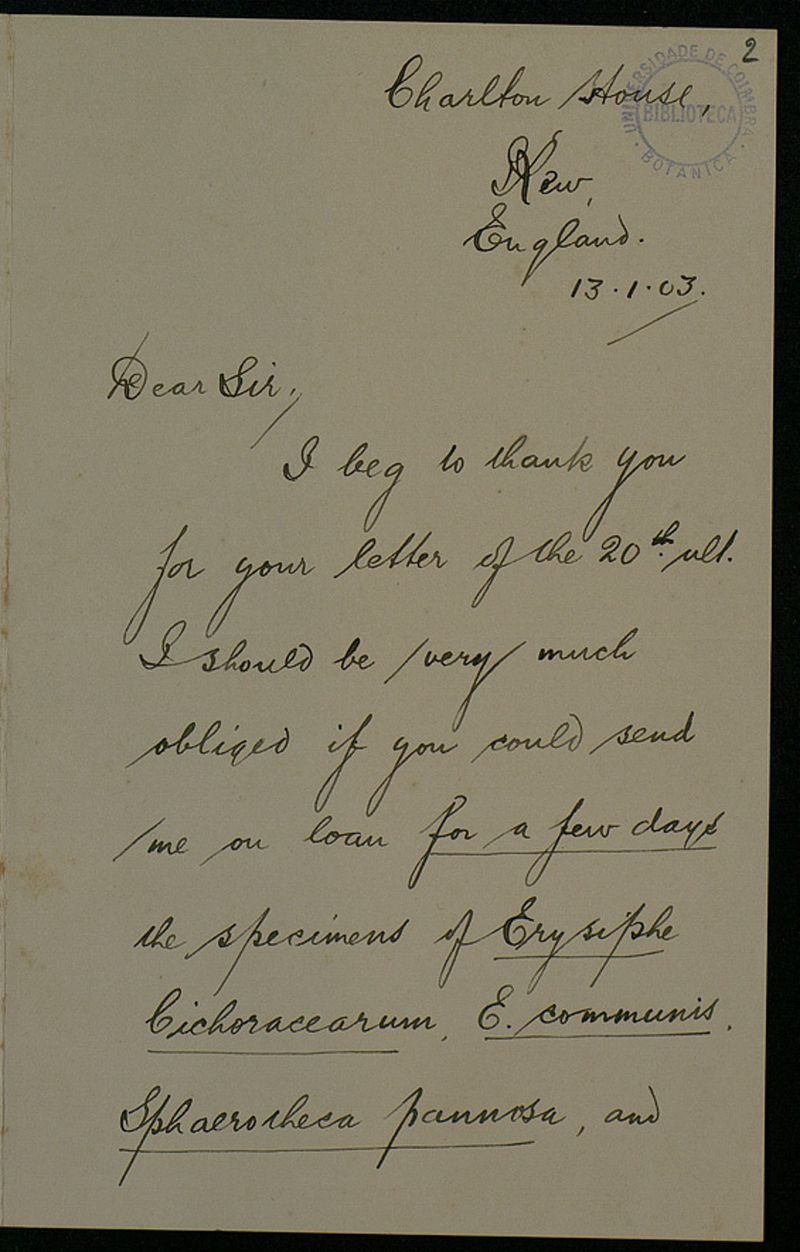 2
UNIVERSIDADE DE COIMBRA
BIBLIOTECA
BOTANICA
Charlton House,
Kew,
England.
13.1.03.
Dear Sir,
I beg to thank you
for your letter of the 20th. ult.
I should be very much
obliged if you could send
me on loan for a few days
the specimens of Erysiphe
Cichoracearum, E. communis,
Sphaerotheca pannosa, and